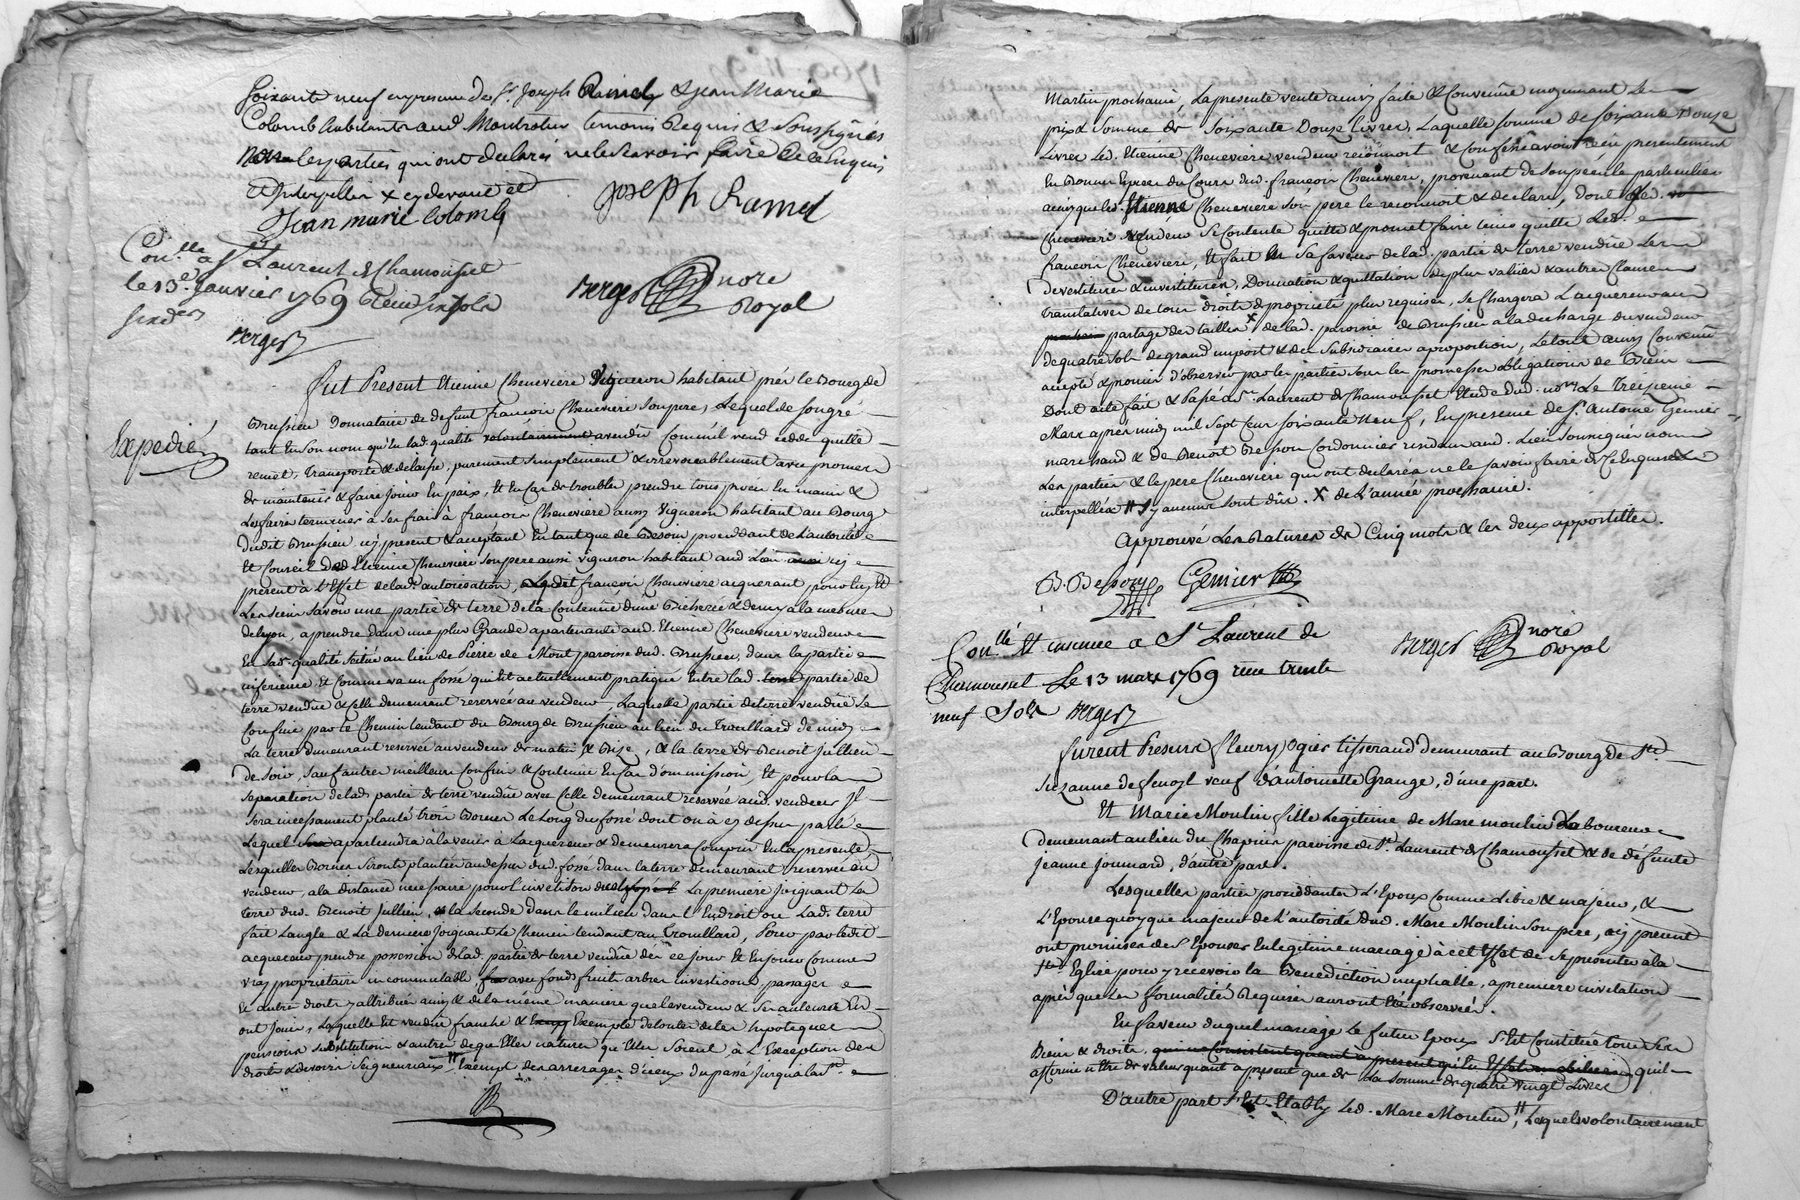 soixante neuf en presence des Sr. Joseph Ramel & Jean Marie
Colomb habitants aud. Montrotier temoins Requis & soussignés
non les parties qui ont declarés ne le scavoir faire de ce enquis
& interpellés x cy devant et
Jean marie Colomb
Joseph Ramel
Con.lle a St Laurent de Chamousset
le 13e. Janvier 1769 Reçu six sols
six ders
Berger
Berger nore
Royal
Fut Present Etienne Chenevière Vigneron habitant près le Bourg de
Expedié
Brussieu Donnataire de defunt françois Chenevière son pere, Lequel de son gré
tant en son nom qu'en lad. qualité volontairement a vendu Comme il vend cedde quitte
remet, Transporte & delaisse, purement simplement & irrevocablement avec promesse
de maintenir & faire Jouir En paix, Et En Cas de troubles prendre tous procés En main &
Les faire terminer à ses frais à françois Chenevière aussy Vigneron habitant au Bourg
dudit Brussieu icy present & acceptant En tant que de Besoin procedant de L'autorité
Et Conseil D'Etienne Chenevière son pere aussi vigneron habitant aud. Lieu icy
present à l'Effet de lad. autorisation, françois Chenevière acquerant pour luy Et
Les siens Savoir une partie de terre de la Contenüe d'une Bicherée & demy a la mesure
de Lyon, a prendre dans une plus Grande apartenante aud. Etienne Chenevière vendeur
En sad. qualité scitué au lieu de Pierre de Mont paroisse dud. Brussieu, dans la partie
inferieure Et Comme va un fossé qui Est actuellement pratiqué Entre lad. terre partie de
terre vendüe & celle demeurant reservée au vendeur, Laquelle partie de terre vendüe se
Confine par le Chemin tendant du Bourg de Brussieu au lieu du Trouilhard de midy
La terre demeurant reservée au vendeur de matin & Bize, & la terre de Benoit Jullien
de soir, sauf autres meilleurs Confins & Contenue En Cas d'ommission, Et pour la
separation de lad. partie de terre vendüe avec Celle demeurant reservée aud. vendeur Il
sera incessament planté trois Bornes Le Long du fossé dont on a cy dessus parlé
Lequel apartiendra à la venir à L'acquereur & demeurera Compris En la presente
Lesquelles Bornes seront plantées au dessus dud. fossé dans la terre demeurant reservée au
vendeur, a la distance necessaire pour L'invetison dud. La premiere Joignant La
terre dud. Benoit Jullien, la seconde dans le milieu dans L'Endroit ou Lad. terre
fait L'angle & La derniere Joignant Le Chemin tendant au Trouillard, Pour par ledit
acquereur prendre possession de lad. partie de terre vendüe dès ce jour Et En Jouir Comme
vray proprietaire incommutable, avec fonds fruits arbres investisons passages
Et autres droits y attribués ainsy & de la même maniere que le vendeur & ses auteurs En
ont Joui, Laquelle Est vendüe franche & Exempte de toutes dettes hypoteques
pensions substitutions & autres de quelles natures qu'Elles soient, à L'Exception des
droits & devoirs Seigneuriaux # Exempt des arrerages d'iceux du passé Jusqu'a la St.
Martin prochaine, La presente vente ainsy faite & Convenüe moyennant Le
prix & Somme de Soixante Douze Livres, Laquelle somme de soixante Douze
Livres Led. Etienne Chenevière vendeur reconnoit & Confesse avoir reçu presentement
En Bonnes Especes du Cours dud. françois Chenevière, provenant de son pecule particulier
ainsy que led. Etienne Chenevière son pere le reconnoit & declare, Dont led.
Chenevière vendeur se Contente quitte & promet faire tenir quitte Led.
françois Chenevière, Et fait En sa faveur de lad. partie de terre vendüe Les
devestitures & investitures, Donnation & quittation de plus value & autres Clauses
translatives de tous droits de proprieté plus requises, se Chargera L'acquereur au
prochain partage des tailles x de lad. paroisse de Brussieu a la decharge du vendeur
de quatre sols de grand impost & des subsidiaires a proportion, Le tout ainsy Convenüe
accepté & promis d'observer par les parties sous les promesses obligations de Biens
Dont acte fait & Passé à St. Laurent de Chamousset Etude dud. nore Le Treizieme
Mars après midy mil Sept Cent soixante Neuf, En presence de Sr. Antoine Genier
marchand & de Benoit Besson Cordonnier residans aud. Lieu soussignés non
Les parties & le pere Chenevière qui ont declarés ne le savoir faire de Ce Enquis &
interpellés # s'y aucuns sont dûs. X de L'année prochaine.
Approuvé Les Ratures de Cinq mots & les deux appostilles.
B. Besson Genier
Con.llé Et insinué a St Laurent de
Chamousset Le 13 mars 1769 reçu trente
neuf Sols Berger
Berger nore
Royal
Furent Presens fleury Ogier tisserand demeurant au Bourg de Ste.
Suzanne veuf d'antoinette Grange, d'une part.
Et Marie Moulin fille Legitime de Marc moulin Laboureur
demeurant au lieu du Chapuis paroisse de St. Laurent de Chamousset & de défunte
jeanne Joumard, d'autre part.
Lesquelles parties procedantes L'Epoux Comme Libre & majeur, &
L'Epouse quoyque majeure de L'autorité dud. Marc Moulin son pere, icy present
ont promises de s'Epouser En Legitime mariage à cet Effet de se presenter a la
Ste Eglise pour y recevoir la Benediction nuptiale, a premiere invitation
après que Les formalités Requises auront été observées.
En faveur duquel mariage Le futur Epoux S'Est Constitué tous ses
Biens & droits, qui ne Consistent quant a present qu'En Effets mobiliaires qu'il
affirme n'être de valeur quant a present que de La somme de quatre vingt Livres
D'autre part S'Est Etably Led. Marc Moulin, # Lequel volontairement